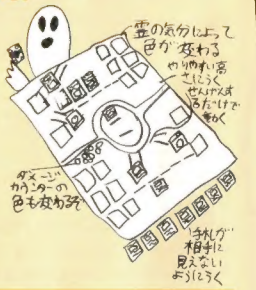 霊の気分によって
色が変わる
やりやすい高
さにうく
せんげんす
るだけで
動く
ダメージ
カウンターの
色も変わるぞ
手札が
相手に
見えない
ようにうく